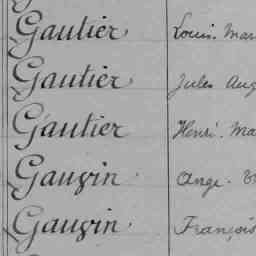 Gautier Louis. Mar
Gautier Jules Aug
Gautier Henri. Ma
Gauvin Ange.
Gauvin François